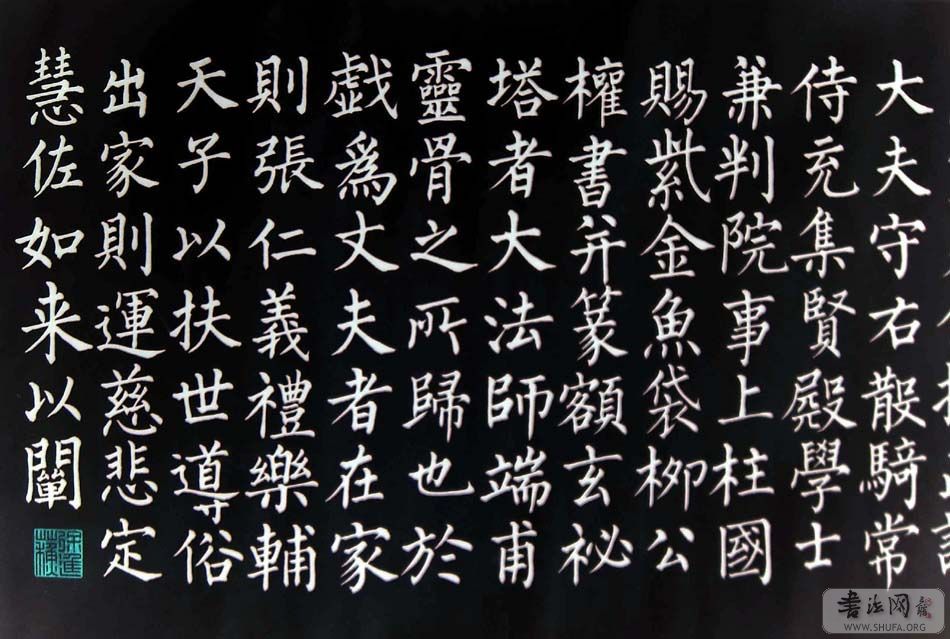 大夫守右散騎常
侍充集賢殿學士
兼判院事上柱國
賜紫金魚袋柳公
權書并篆額玄祕
塔者大法師端甫
靈骨之所歸也於
戯爲丈夫者在家
則張仁義禮樂輔
天子以扶世導俗
出家則運慈悲定
慧佐如来以闡
书法网
WWW.SHUFA.ORG